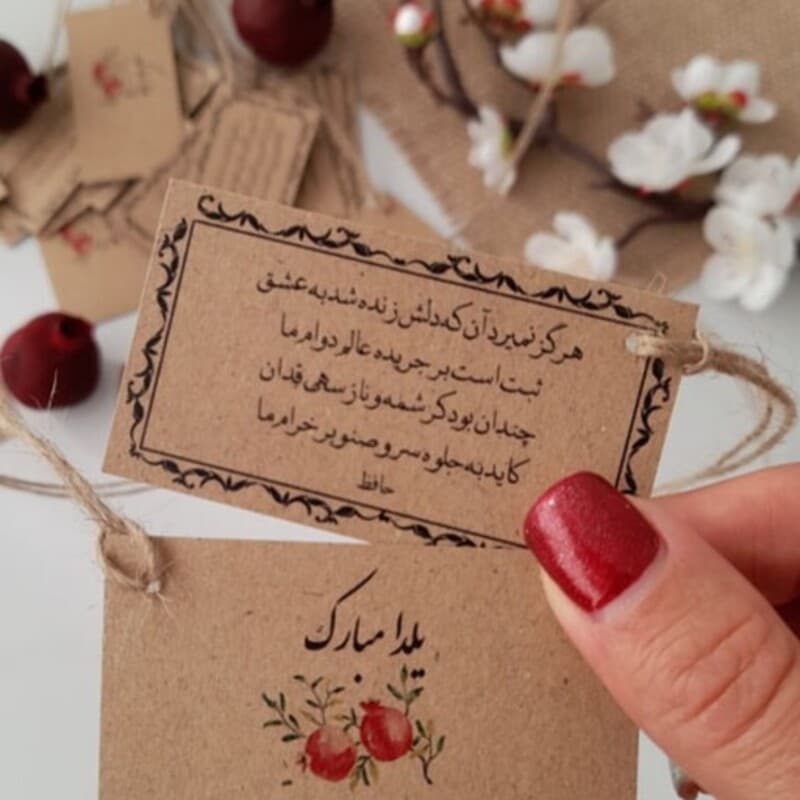 هرگز نمیرد آن که دلش زنده شد به عشق
ثبت است بر جریده عالم دوام ما
چندان بود کرشمه و ناز سهی قدان
کاید به جلوه سرو صنوبر خرام ما
حافظ
یلدا مبارک